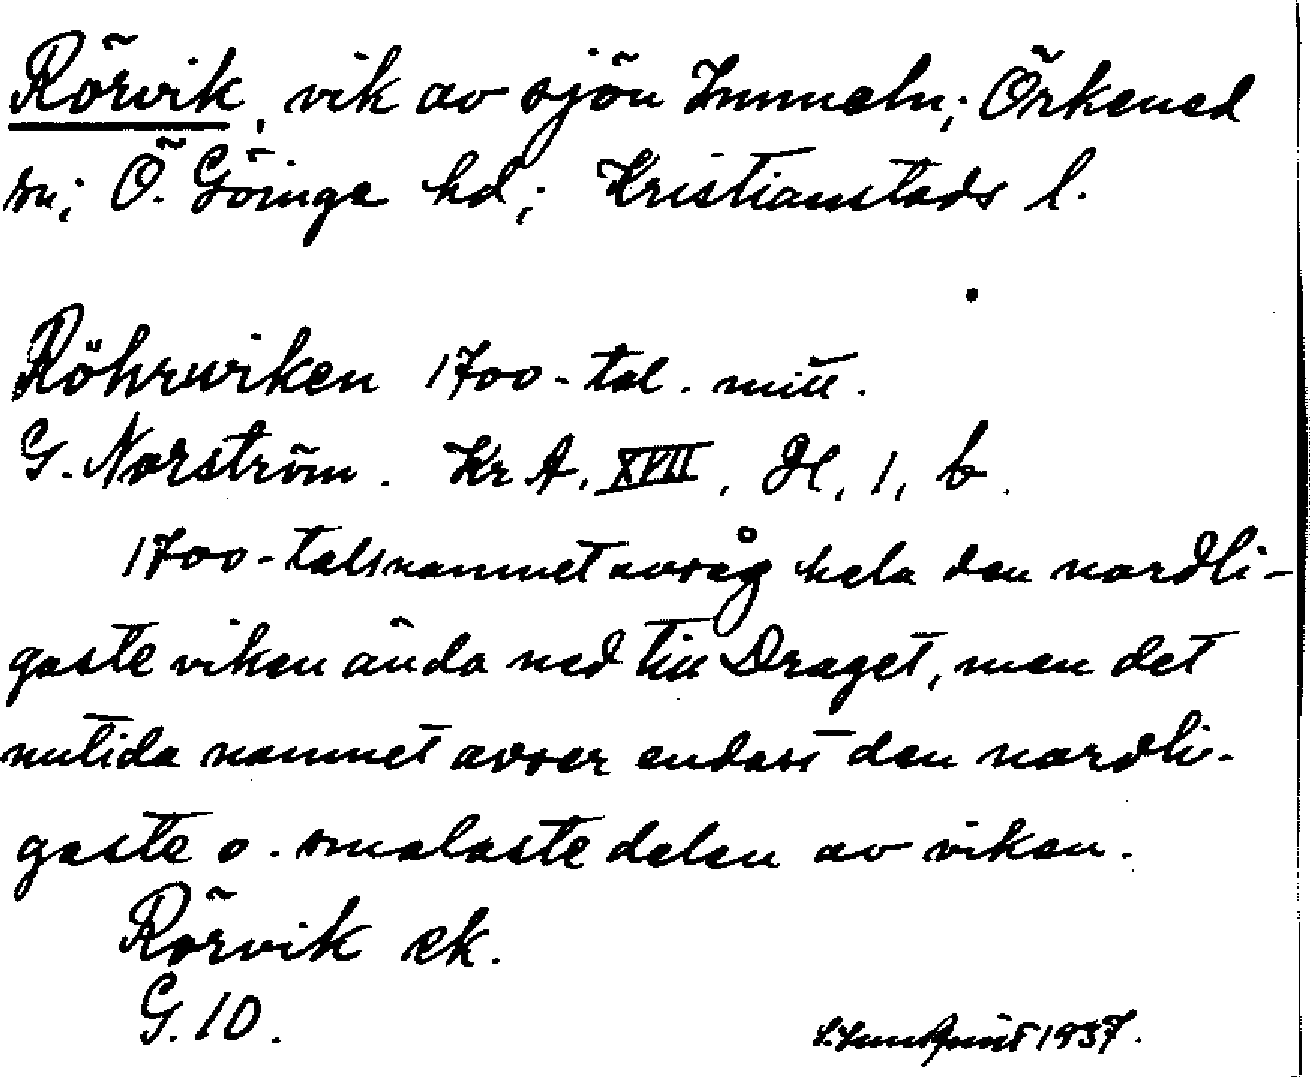 Rörvik, vik av sjön Immeln; Örkened
sn; Ö. Göinge hd; Kristianstads l.
Röhrwiken 1700-tal. mitt.
G. Norström. Kr A. XVII, H, 1, b.
1700-talsnamnet avsåg hela den nordli-
gaste viken ända ned till Draget, men det
nutida namnet avser endast den nordli-
gaste o. smalaste delen av viken.
Rörvik ek.
G. 10.
1937.